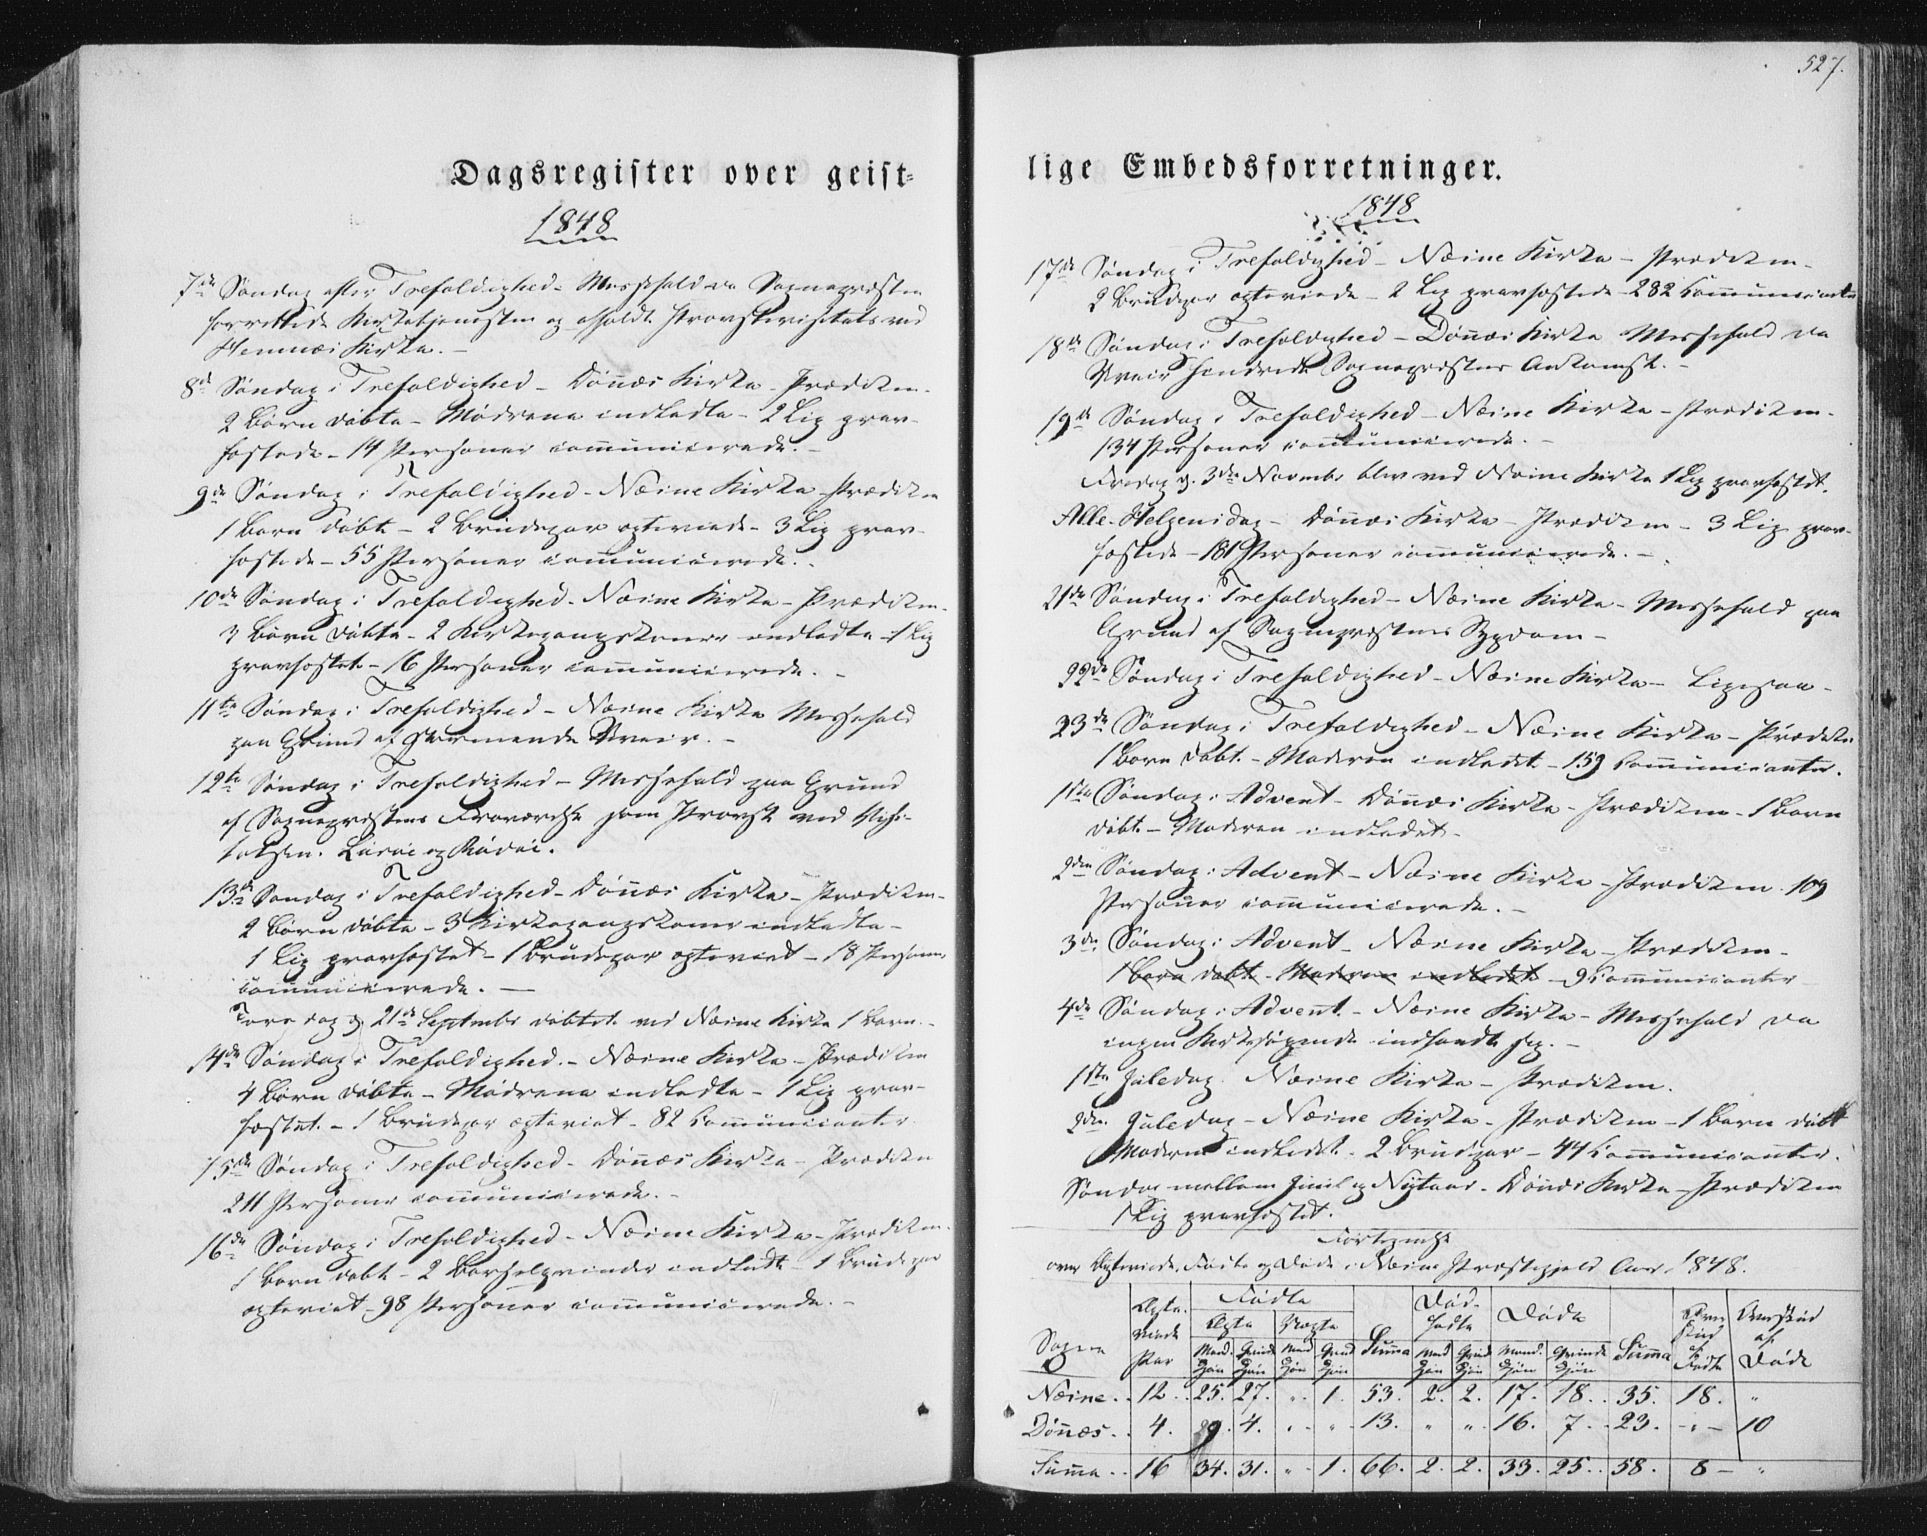 Dagsregister over geist-
1848
7de Søndag efter Trefoldighed - Messefald da Sognepresten
forrettede Kirketjenesten og afholdt Provstevisitats ved
Hemnæs Kirke. -
8de Søndag i Trefoldighed - Dönnæs Kirke - Prædiken -
2 Børn døbte - Mødrene indledte - 2 Lig grav-
fæstede - 14 Personer communicerede. -
9de Søndag i Trefoldighed - Næsne Kirke - Prædiken
1 Barn døbt - 2 Brudepar egteviede - 3 Lig grav-
fæstede - 55 Personer communicerede. -
10de Søndag i Trefoldighed - Næsne Kirke - Prædiken -
3 Børn døbte - 2 Kirkegangskoner indledte - 1 Lig
gravfæstet - 16 Personer communicerede. -
11te Søndag i Trefoldighed - Næsne Kirke Messefald
paa Grund af Uveir. -
12te Søndag i Trefoldighed - Messefald paa Grund
af Sogneprestens Fraværelse som Provst ved Visi-
tatsen. Lurøe og Rødøe.
13de Søndag i Trefoldighed - Dönnæs Kirke - Prædiken -
2 Børn døbte - 3 Kirkegangskoner indledte -
1 Lig gravfæstet - 1 Brudepar egteviet - 18 Personer
communicerede. -
Torsdag d. 21de September døbtes ved Næsne Kirke 1 Barn. -
14de Søndag i Trefoldighed. - Næsne Kirke - Prædiken
4 Børn døbte - Mødrene indledte - 1 Lig grav-
fæstet. - 1 Brudepar egteviet - 82 Communicanter
15de Søndag i Trefoldighed - Dönnæs Kirke - Prædiken
211 Personer communicerede. -
16de Søndag i Trefoldighed - Næsne Kirke - Prædiken -
1 Barn døbt - 2 Barselqvinder indledte - 1 Brudepar
egteviet - 98 Personer communicerede. -
527.
lige Embedsforretninger.
1848
17de Søndag i Trefoldighed - Næsne Kirke - Prædiken -
2 Brudepar egteviede - 2 Lig gravfæstede - 282 Communicanter
18de Søndag i Trefoldighed - Dönnæs Kirke Messefald da
Uveir hindrede Sogneprestens Ankomst. -
19de Søndag i Trefoldighed - Næsne Kirke - Prædiken -
134 Personer communicerede. -
Fredag d. 3die Novembr blev ved Næsne Kirke 1 Lig gravfæstet.
Alle-Helgensdag - Dönnæs Kirke - Prædiken - 3 Lig grav-
fæstede - 181 Personer communicerede. -
21de Søndag i Trefoldighed - Næsne Kirke - Messefald paa
Grund af Sogneprestens Sygdom -
22de Søndag i Trefoldighed - Næsne Kirke - Ligesaa -
23de Søndag i Trefoldighed - Næsne Kirke - Prædiken
1 Barn døbt - Moderen indledet - 159 Communicanter.
1ste Søndag i Advent - Dönnæs Kirke - Prædiken - 1 Barn
døbt - Moderen indledet -
2den Søndag i Advent - Næsne Kirke - Prædiken - 109
Personer communicerede. -
3die Søndag i Advent - Næsne Kirke - Prædiken -
1 Barn døbt - Moderen indledet - 9 Communicanter
4de Søndag i Advent - Næsne Kirke - Messefald da
ingen Kirkesøgende indfandt sig. -
1ste Juledag. Næsne Kirke - Prædiken.
2den Juledag - Næsne Kirke - Prædiken - 1 Barn døbt
Moderen indledet - 2 Brudepar - 44 Communicanter.
Søndag mellem Juul og Nytaar - Dönnæs Kirke - Prædiken
1 Lig gravfæstet.
Fortegnelse
over Egteviede, Fødte og Døde i Næsne Præstegjeld Aar 1848.
Sogne Egte-viede Par Fødte Summa Død-fødte Døde Summa Over-skud af Fødte Overskud af Døde
Egte Uegte
Mand Kjøn Qvinde Kjøn Mand Kjøn Qvind Kjøn Mand Kjøn Qvind Kjøn Mand. Kjøn Qvinde Kjøn
Næsne. . 12. . 25. 27. " . 1. 53. 2. 2. 17. 18. . 35. 18. "
Dönnæs. . 4. 9. 4. " . " . 13. " " . 16. 7. . 23. - " - 10
Summa. . 16 34. 31. " . 1. 66. 2. 2. 33. 25. . 58. 8 - "